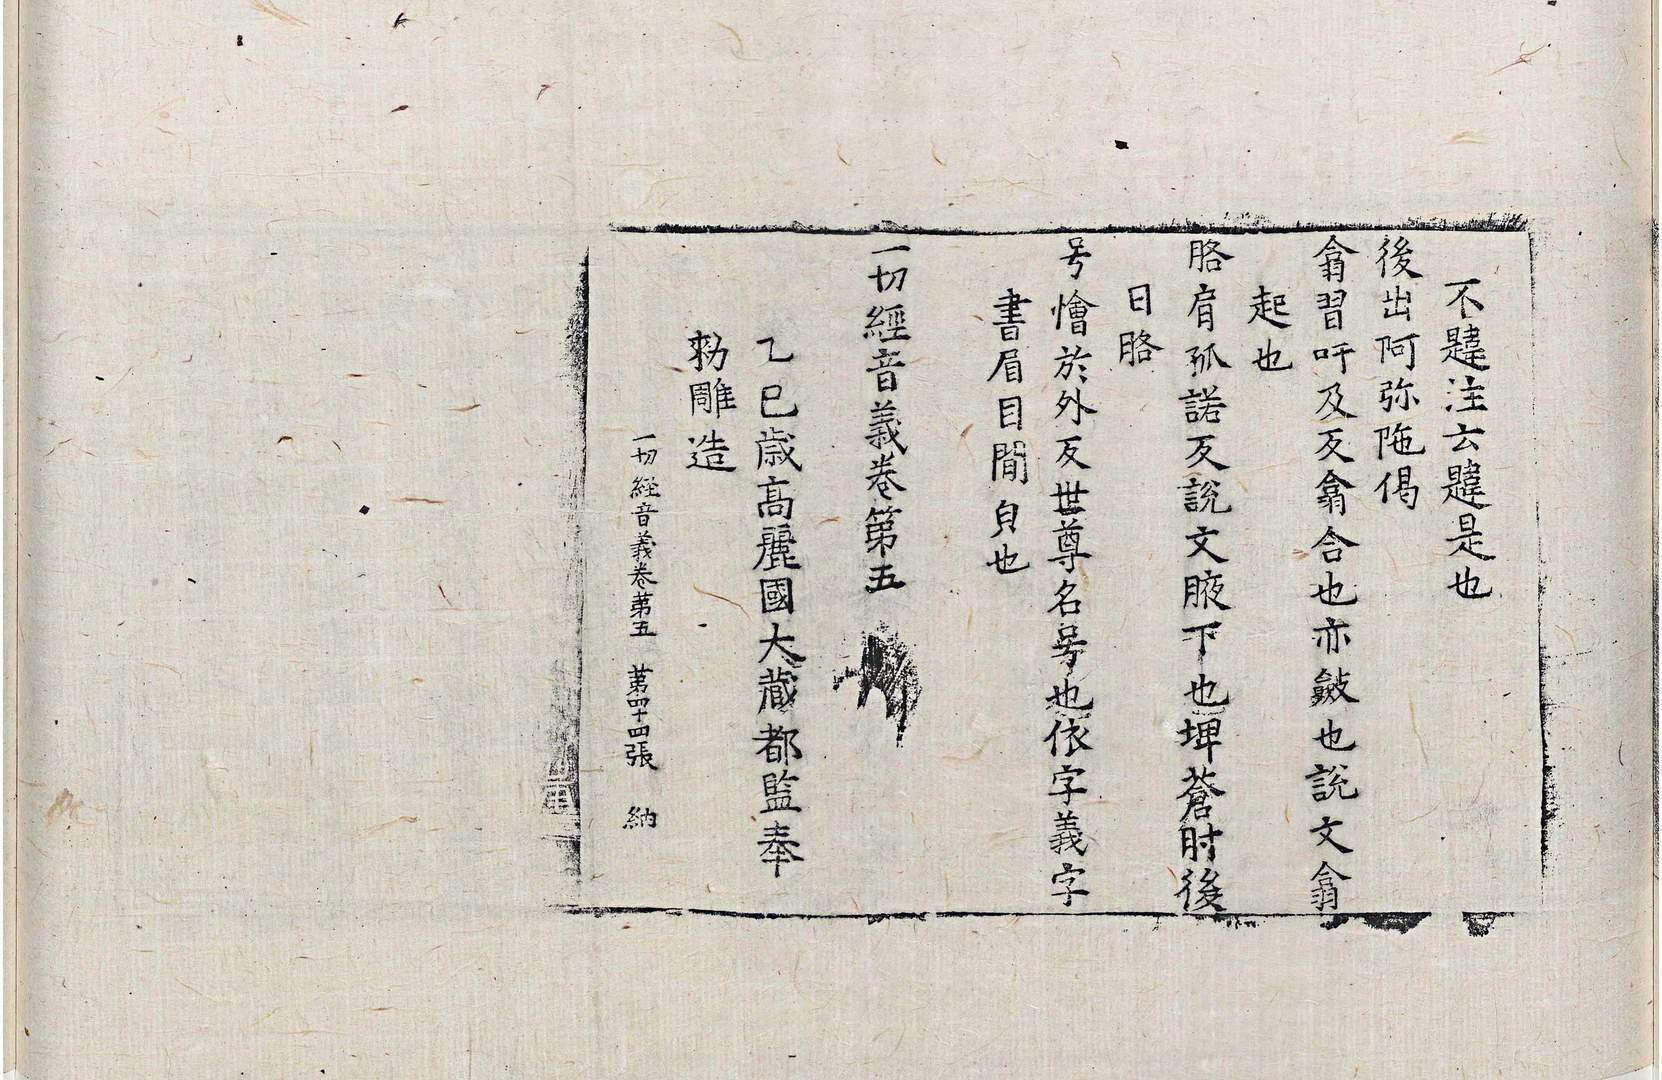 不韙注云韙是也
後出阿弥陁偈
翕習吁及反翕合也亦斂也說文翕
起也
胳肩孤諾反說文腋下也埤蒼肘後
曰胳
号懀於外反世尊名号也依字義字
書眉目間皃也
一切經音義卷第五
乙巳歳高麗國大藏都監奉
勑雕造
一切経音義卷第五　第四十四張　納